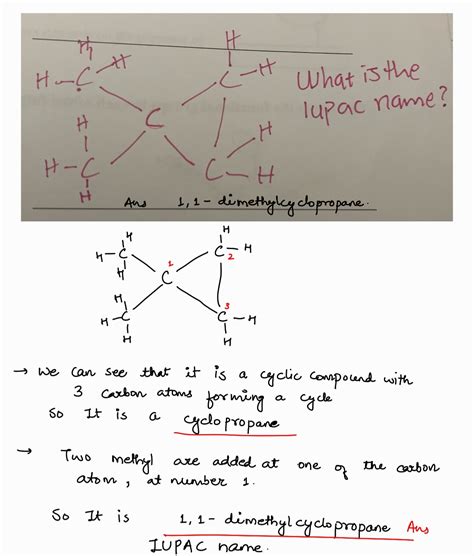 What is the
H
H
H H
H-C C-H
iupac name?
C
H H
H-C C-H
H H
Ans 1,1-dimethylcyclopropane.
H H
H-C C-H
H 1 2
C
H 3
H-C C-H
H H
→ We can see that it is a cyclic compound with
3 carbon atoms forming a cycle
So It is a cyclopropane
→ Two methyl are added at one of the carbon
atom, at number 1.
So It is 1,1-dimethylcyclopropane Ans
IUPAC name.